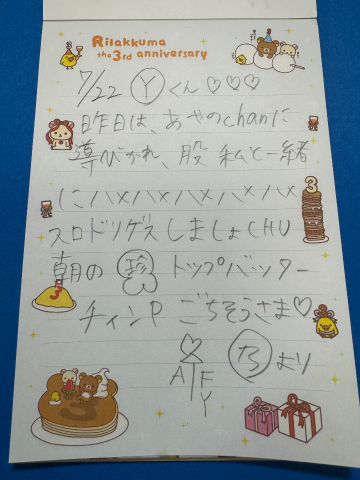 Rilakkuma
the 3rd anniversary
7/22 Yくん♡♡♡
昨日は、あやのchanに
導びかれ、股 私と一緒
にハメハメハメハメハメ
スロドリゲスしましょCHU
朝の 珍 トップバッター
チィンP ごちそうさま♡
A F
Y
たより
3
3
3